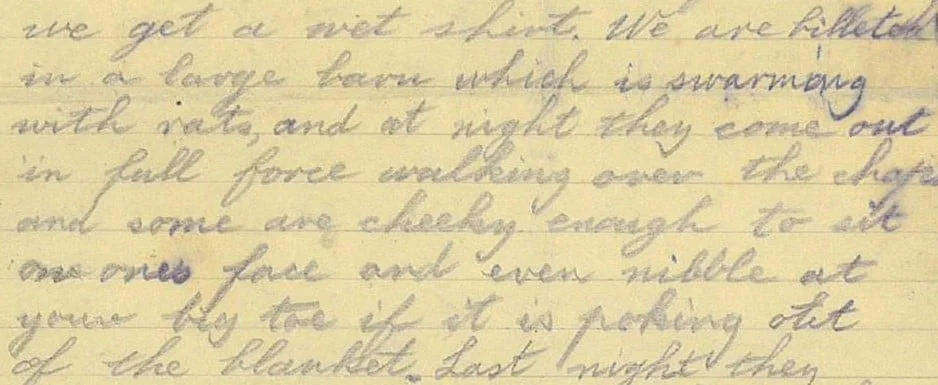 we get a wet shirt. We are billeted
in a large barn which is swarming
with rats, and at night they come out
in full force walking over the chaps
and some are cheeky enough to sit
on ones face and even nibble at
your big toe if it is poking out
of the blanket. Last night they